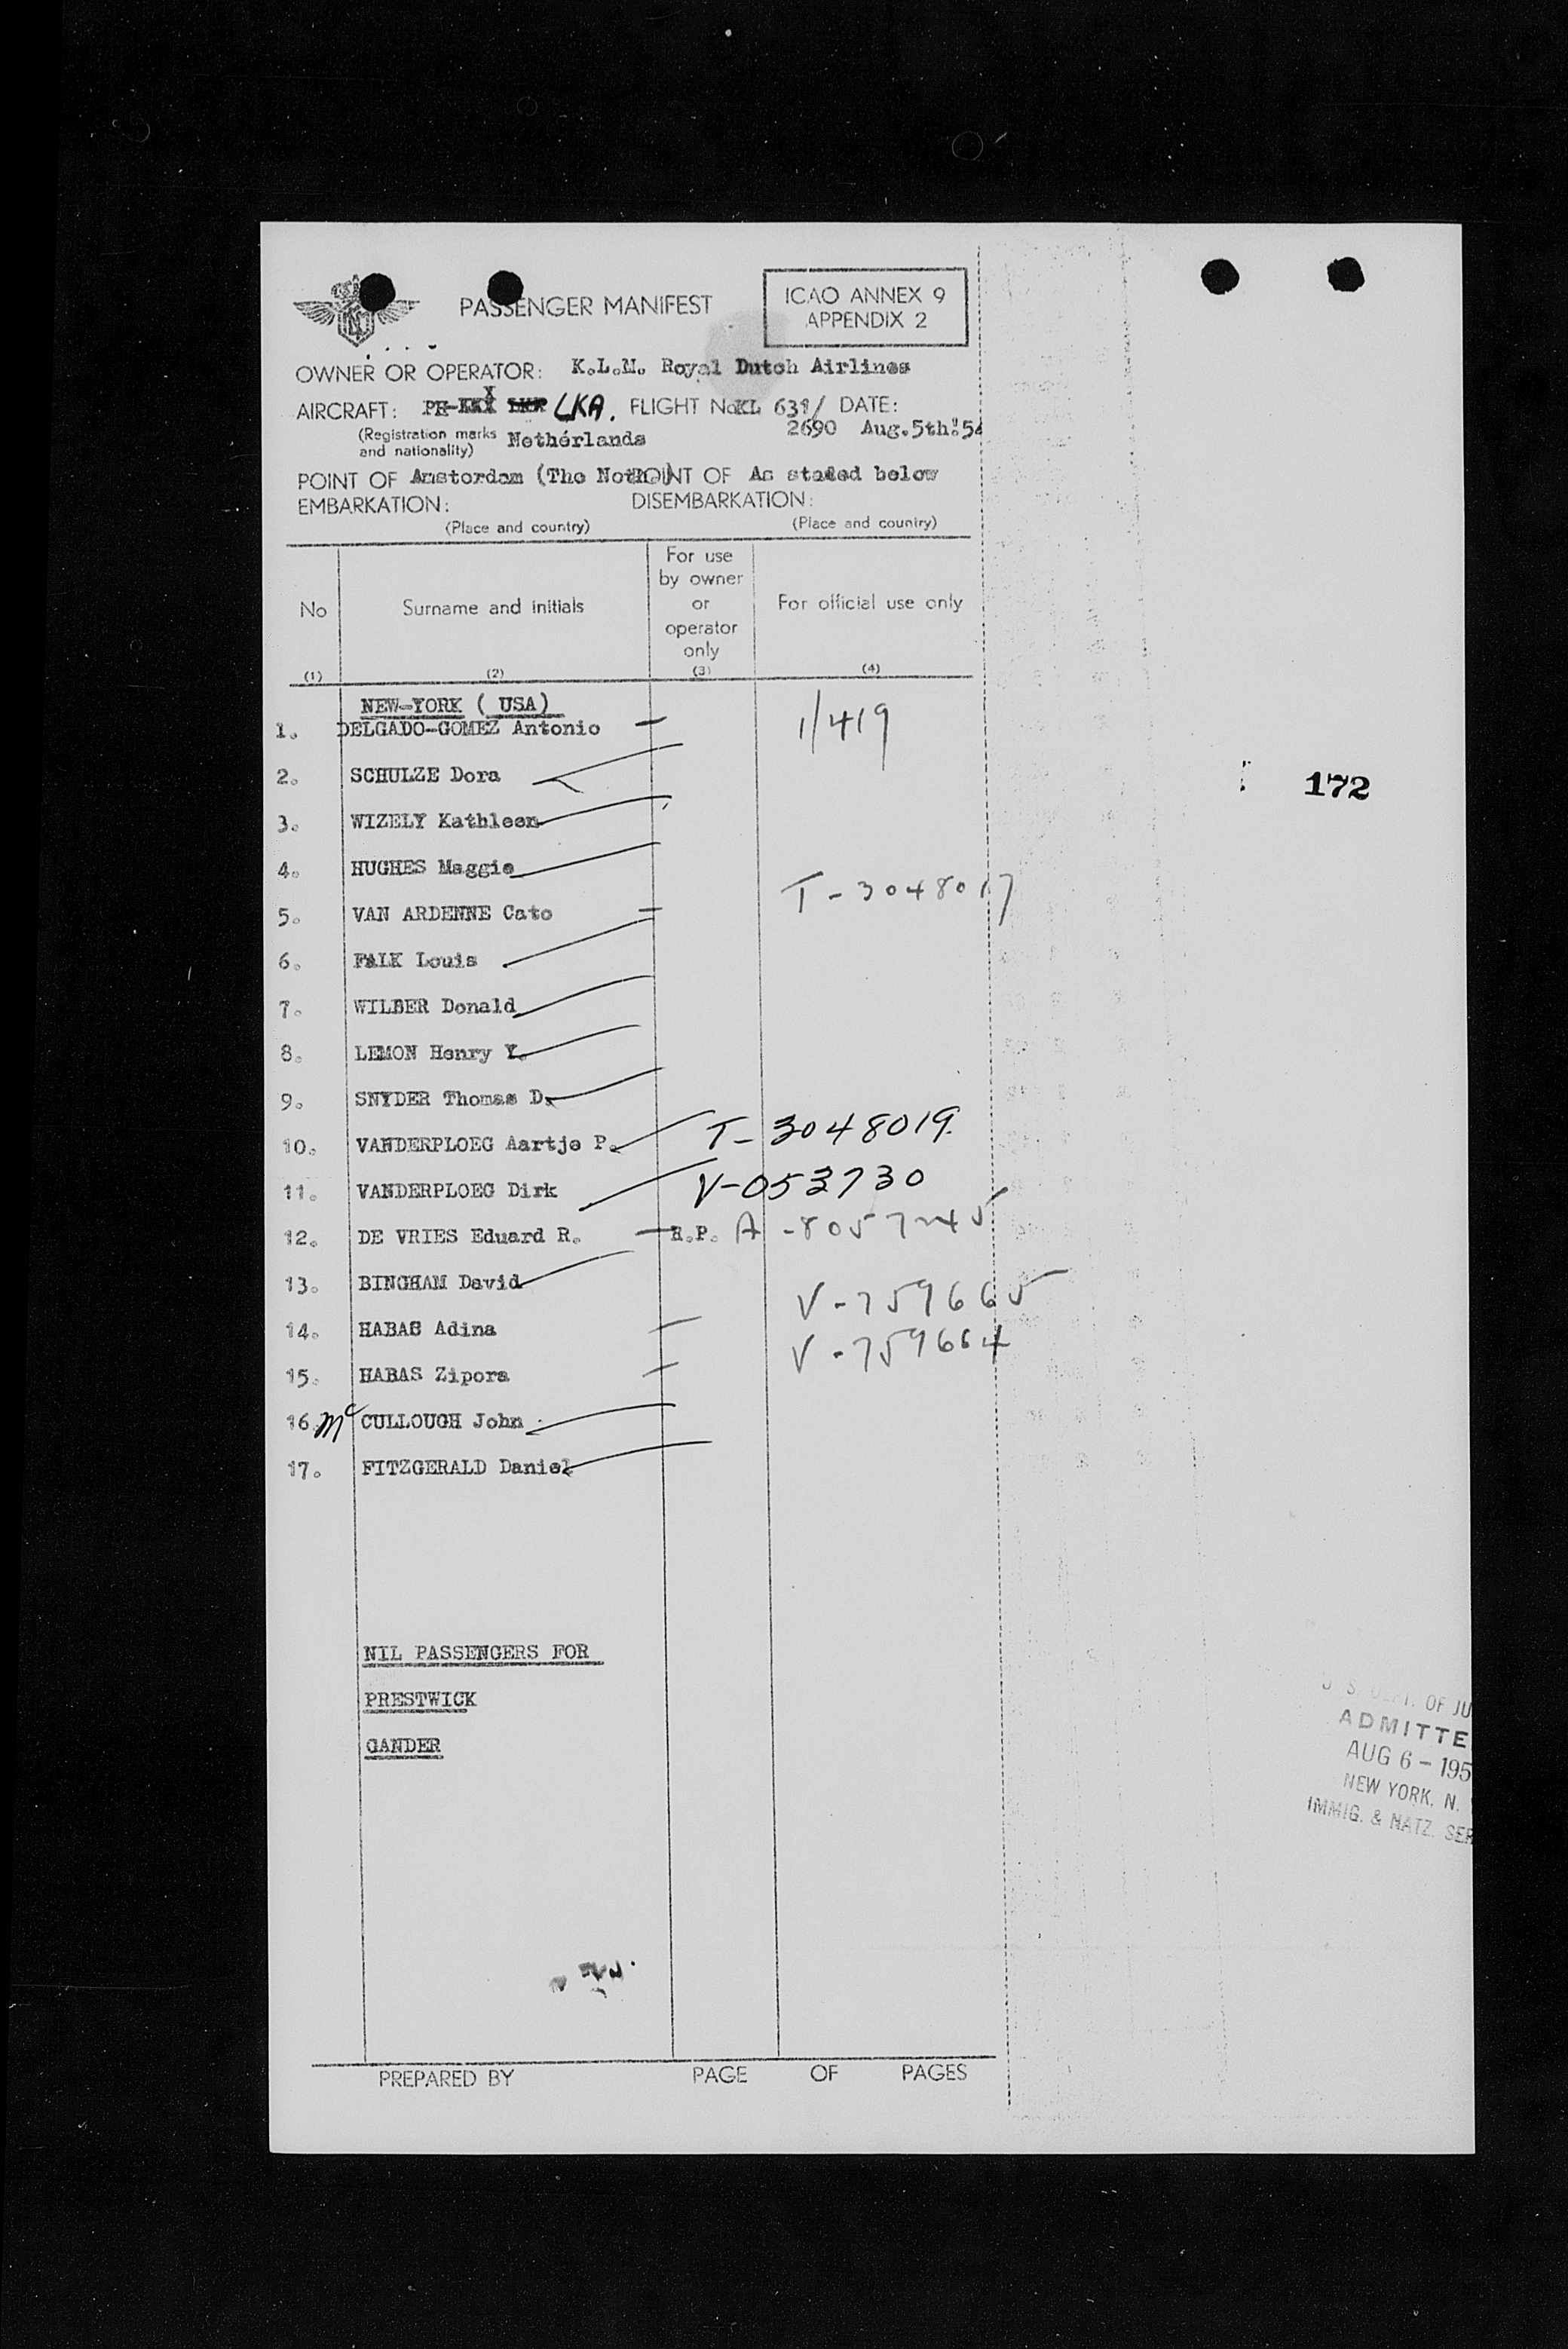 PASSENGER MANIFEST
ICAO ANNEX 9
APPENDIX 2
OWNER OR OPERATOR: K.L.M. Royal Dutch Airlines
AIRCRAFT: PH- LKA. FLIGHT No KL 631/ DATE:
2690 Aug.5th.'54
(Registration marks and nationality) Netherlands
POINT OF EMBARKATION: Amsterdam (The Neth.)
(Place and country)
POINT OF DISEMBARKATION: As stated below
(Place and country)
No
(1)
Surname and initials
(2)
For use
by owner
or
operator
only
(3)
For official use only
(4)
NEW-YORK ( USA)
1. DELGADO-GOMEZ Antonio — 1/419
2. SCHULZE Dora
3. WIZELY Kathleen
4. HUGHES Maggie
5. VAN ARDENNE Cato — T-3048017
6. FALK Louis
7. WILBER Donald
8. LEMON Henry Y.
9. SNYDER Thomas D.
10. VANDERPLOEG Aartje P. T-3048019
11. VANDERPLOEG Dirk V-053730
12. DE VRIES Eduard R. — R.P. A-8057245
13. BINGHAM David
14. HABAS Adina — V-759665
15. HABAS Zipora — V-759664
16. Mc CULLOUGH John
17. FITZGERALD Daniel
172
NIL PASSENGERS FOR
PRESTWICK
GANDER
U S DEPT. OF JU
ADMITTE
AUG 6 - 195
NEW YORK, N.
IMMIG. & NATZ. SER
PREPARED BY PAGE OF PAGES